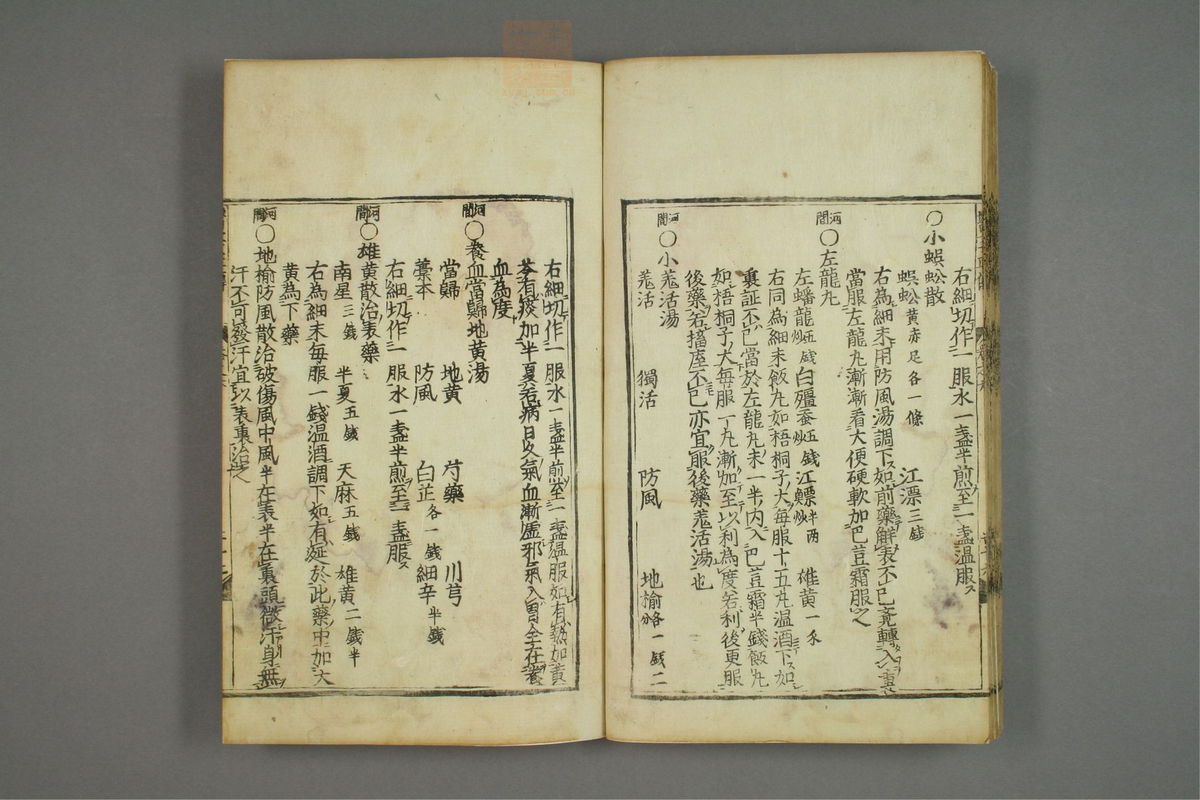 右細切作一服水一盞半煎至一盞温服
〇小蜈蚣散
蜈蚣黄赤足各一條 江漂三錢
右為細末用防風湯調下如前藥解表不已竟轉入裏
當服左龍丸漸漸看大便硬軟加巴荳霜服之
河間〇左龍丸
左蟠龍炒五錢 白殭蚕炒五錢 江鰾炒半两 雄黄一禾
右同為細末飯丸如梧桐子大毎服十五丸温酒下如
裏証不已當於左龍丸末一半內入巴荳霜半錢飯丸
如梧桐子大毎服一丸漸加至以利為度若利後更服
後藥若搐痓不已亦宜服後藥羌活湯也
河間〇小羌活湯
羌活 獨活 防風 地榆各一錢二分
右細切作一服水一盞半煎至一盞温服如有熱加黄
芩有痰加半夏若病日久氣血漸虚邪氣入胃全在養
血為度
河間〇養血當歸地黄湯
當歸 地黄 芍藥 川芎
藁本 防風 白芷各一錢 細辛半錢
右細切作一服水一盞半煎至一盞服
河間〇雄黄散治表藥
南星三錢 半夏五錢 天麻五錢 雄黄二錢半
右為細末毎服一錢温酒調下如有涎於此藥中加大
黄為下藥
河間〇地榆防風散治破傷風中風半在表半在裏頭微汗身無
汗不可發汗宜以表裏治之